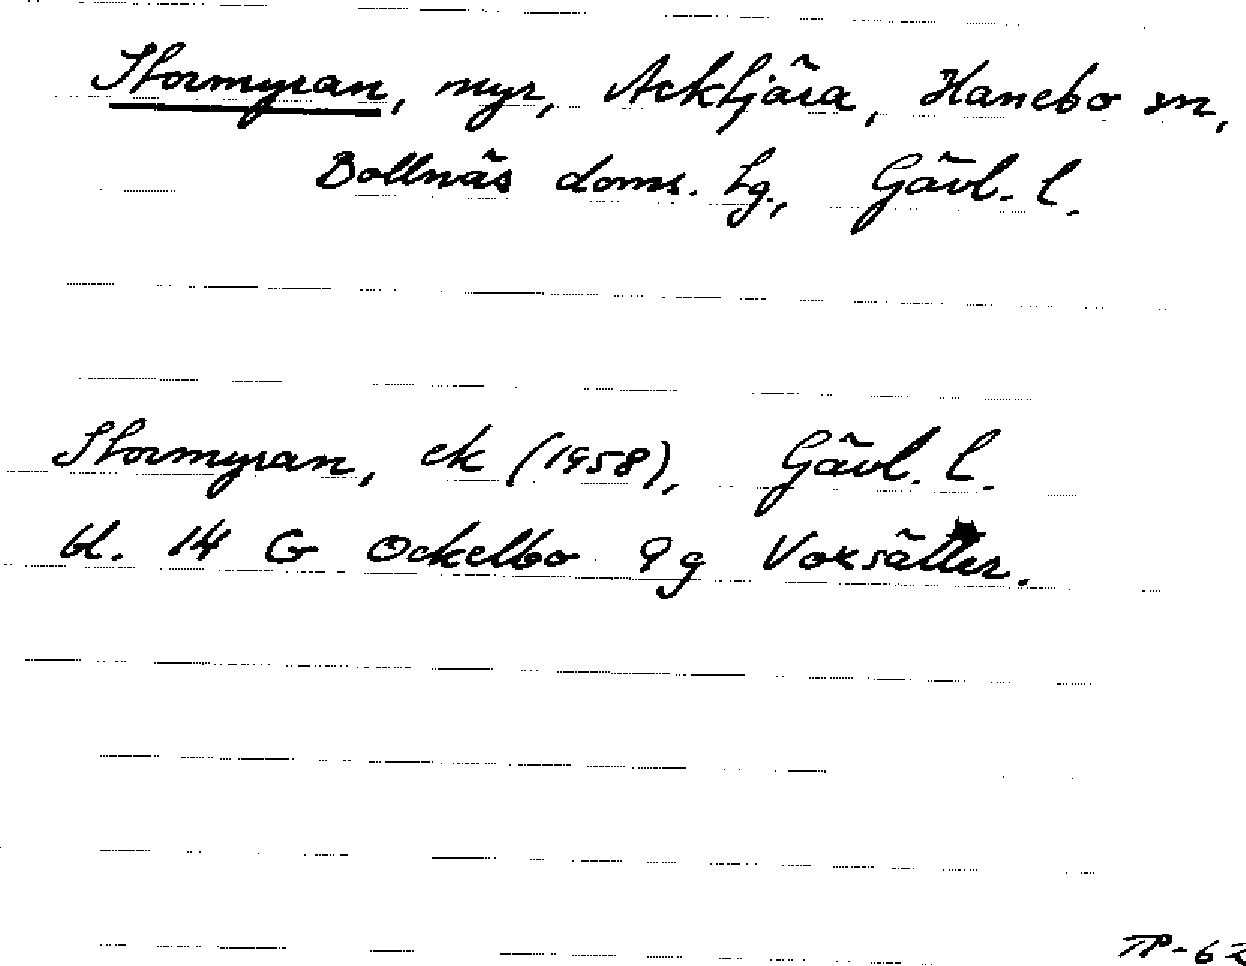 Stormyran, myr, Acktjära, Hanebo sn,
Bollnäs doms. hg., Gävl. l.
Stormyran, ek (1958), Gävl. l.
bl. 14 G Ockelbo 9g Voxsätter.
TP-62